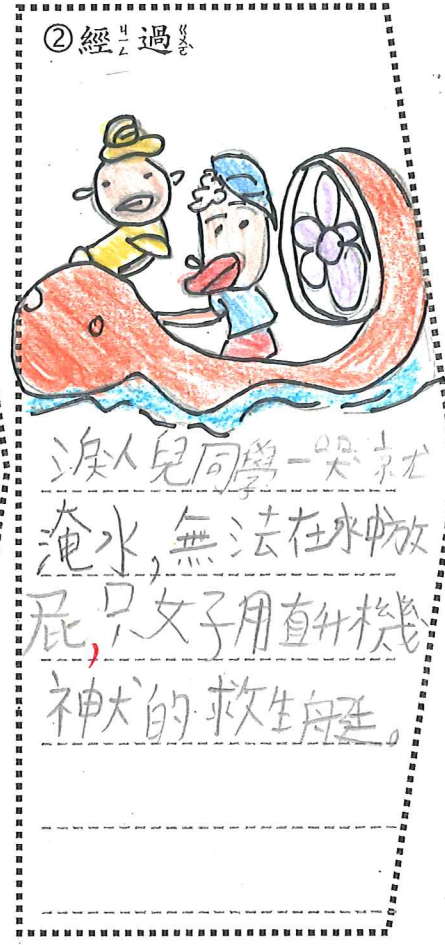 ②經ㄐㄧㄥ過ㄍㄨㄛˋ
淚人兒同學一哭就
淹水,無法在水中放
屁,只女子用直升機
神犬的救生艇。